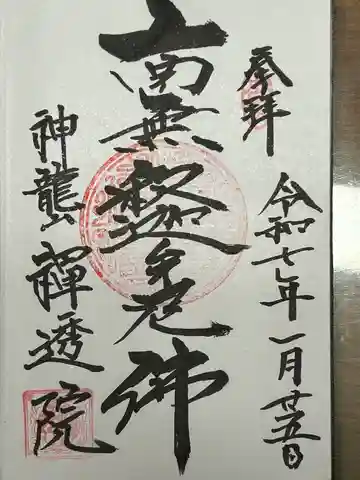 奉拝
令和七年一月廿五日
南無釋迦牟尼佛
神龍山禪透院